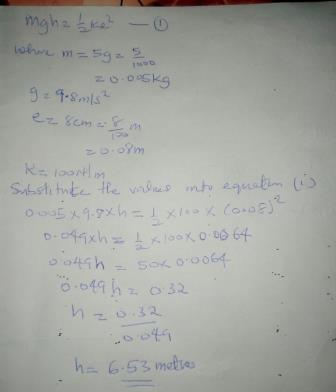 mgh = 1/2 ke² — (1)
where m = 5g = 5/1000
= 0.005kg
g = 9.8m/s²
e = 8cm = 8/100 m
= 0.08m
K = 100N/m
Substitute the values into equation (i)
0.005 x 9.8 x h = 1/2 x 100 x (0.08)²
0.049 x h = 1/2 x 100 x 0.0064
0.049h = 50 x 0.0064
0.049h = 0.32
h = 0.32/0.049
h = 6.53 metres